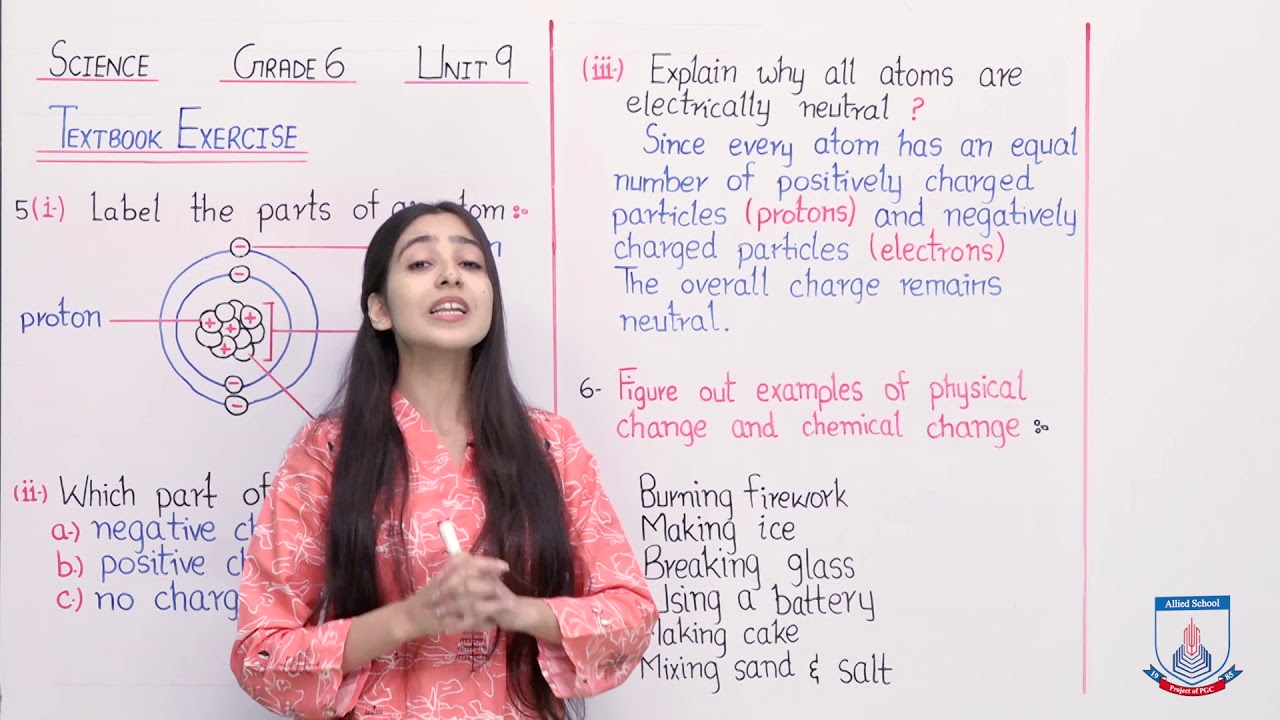 SCIENCE GRADE 6 UNIT 9
TEXTBOOK EXERCISE
5(i.) Label the parts of an atom :-
proton
(ii.) Which part of
a.) negative
b.) positive
c.) no
(iii.) Explain why all atoms are
electrically neutral ?
Since every atom has an equal
number of positively charged
particles (protons) and negatively
charged particles (electrons)
The overall charge remains
neutral.
6- Figure out examples of physical
change and chemical change :-
Burning firework
Making ice
Breaking glass
Using a battery
Making cake
Mixing sand & salt
Allied School
19 85
Project of PGC